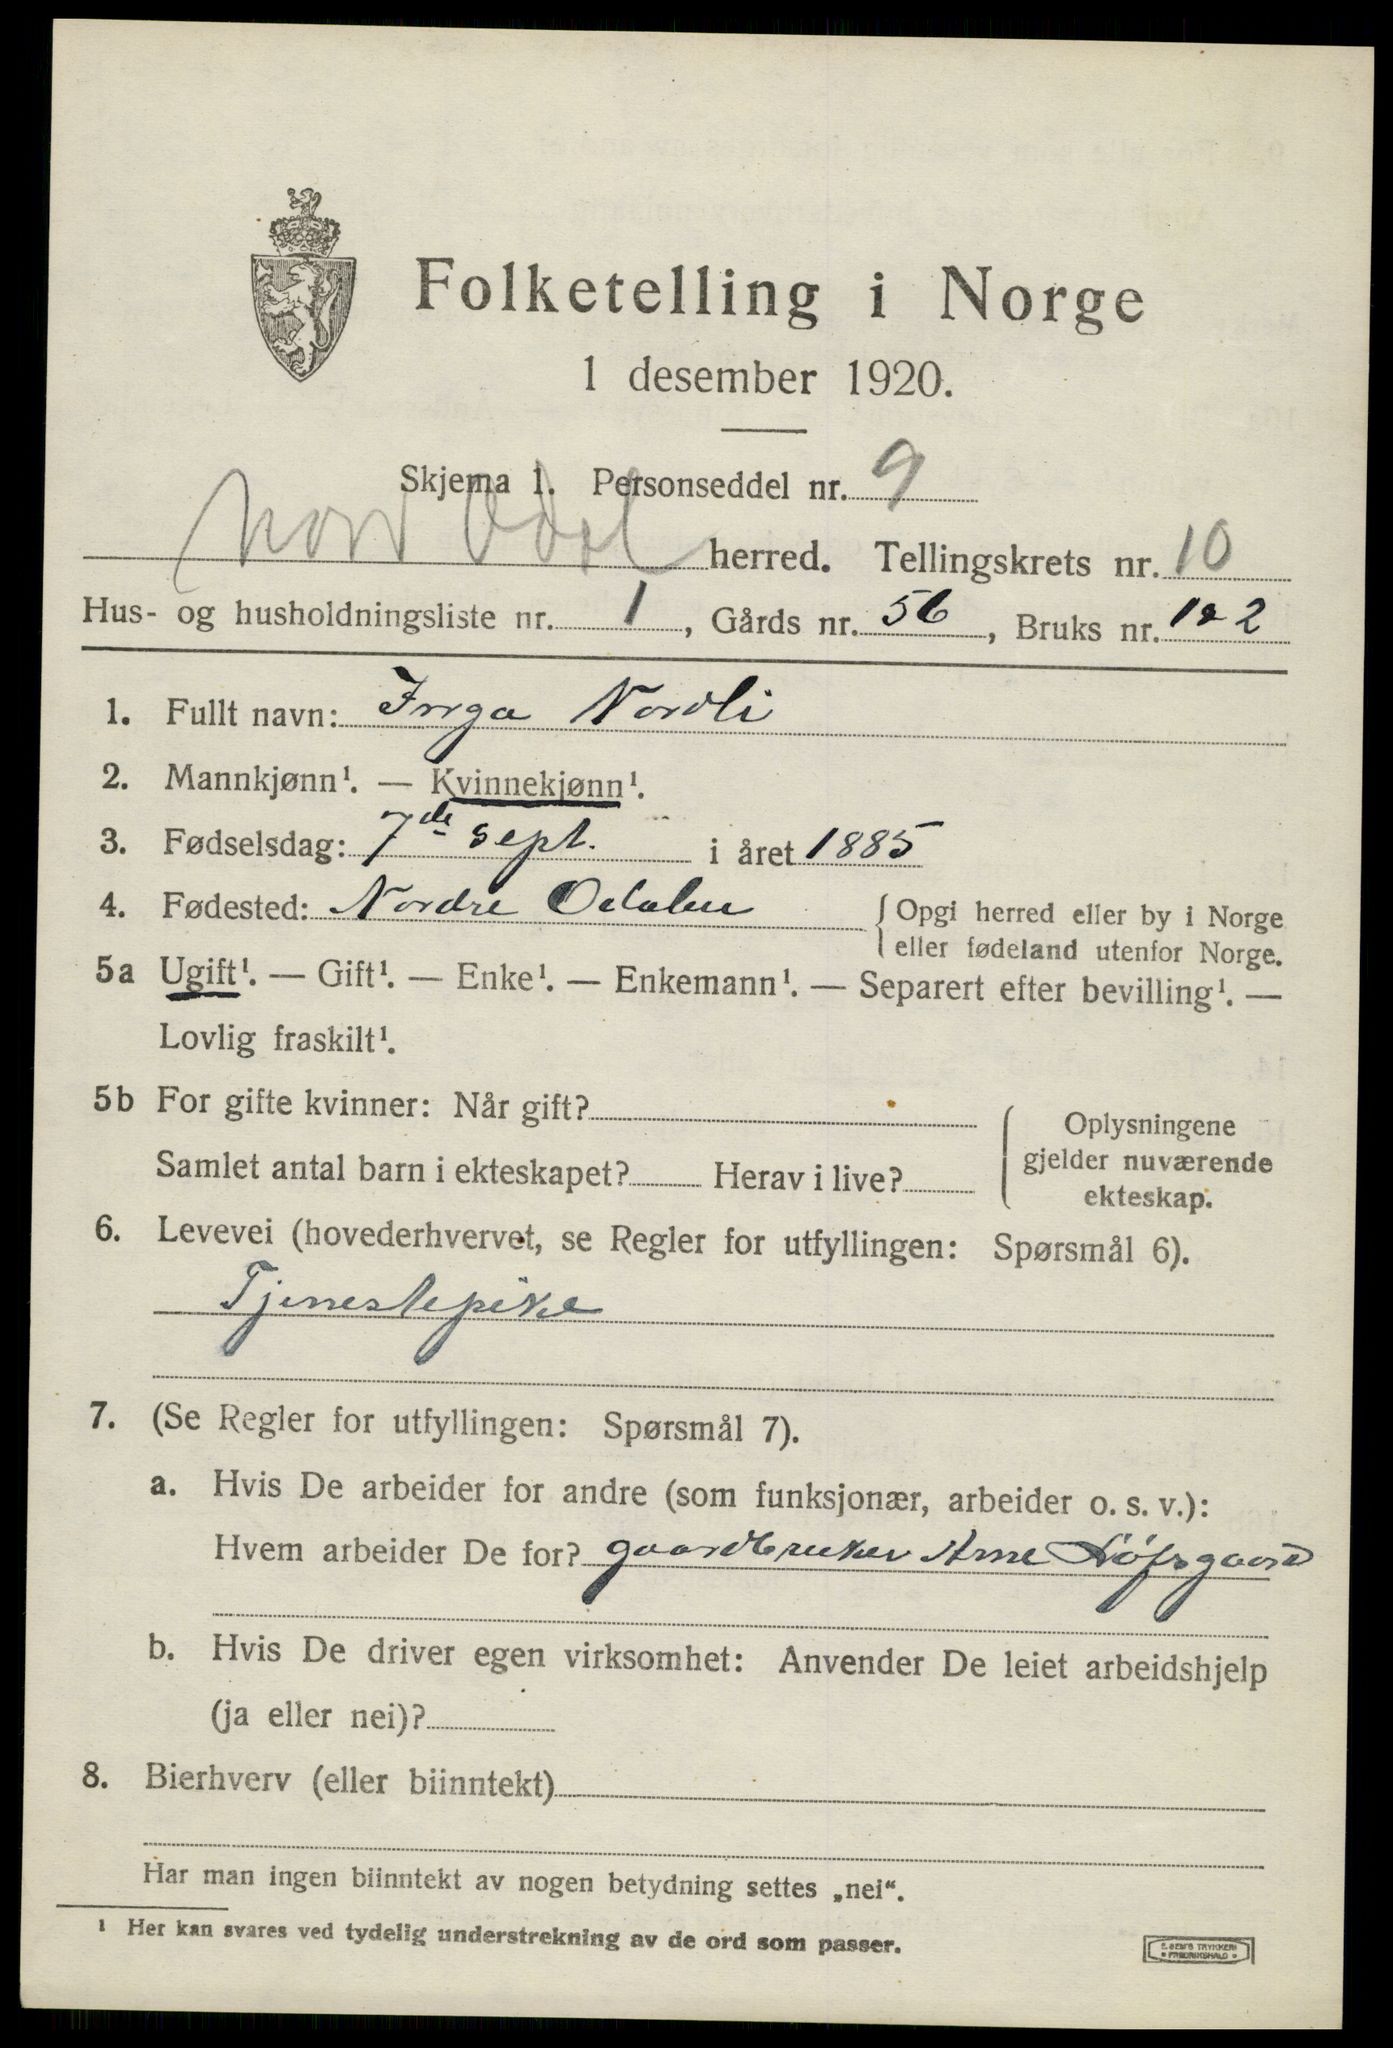 Folketelling i Norge
1 desember 1920.
Skjema 1. Personseddel nr. 9
Nord Odal herred. Tellingskrets nr. 10
Hus- og husholdningsliste nr. 1, Gårds nr. 56, Bruks nr. 1 2
1. Fullt navn: Inga Nordli
2. Mannkjønn¹. — Kvinnekjønn¹.
3. Fødselsdag: 7de sept. i året 1885
4. Fødested: Nordre Odalen {Opgi herred eller by i Norge
eller fødeland utenfor Norge.
5a Ugift¹. — Gift¹. — Enke¹. — Enkemann¹. — Separert efter bevilling¹. —
Lovlig fraskilt¹.
5b For gifte kvinner: Når gift?
Samlet antal barn i ekteskapet? Herav i live?
Oplysningene
gjelder nuværende
ekteskap.
6. Levevei (hovederhvervet, se Regler for utfyllingen: Spørsmål 6).
Tjenestepike
7. (Se Regler for utfyllingen: Spørsmål 7).
a. Hvis De arbeider for andre (som funksjonær, arbeider o. s. v.):
Hvem arbeider De for? gaardbruker Arne Løfsgaard
b. Hvis De driver egen virksomhet: Anvender De leiet arbeidshjelp
(ja eller nei)?
8. Bierhverv (eller biinntekt)
Har man ingen biinntekt av nogen betydning settes „nei“.
¹ Her kan svares ved tydelig understrekning av de ord som passer.
E. SEM'S TRYKKERI
• FREDRIKSHALD •